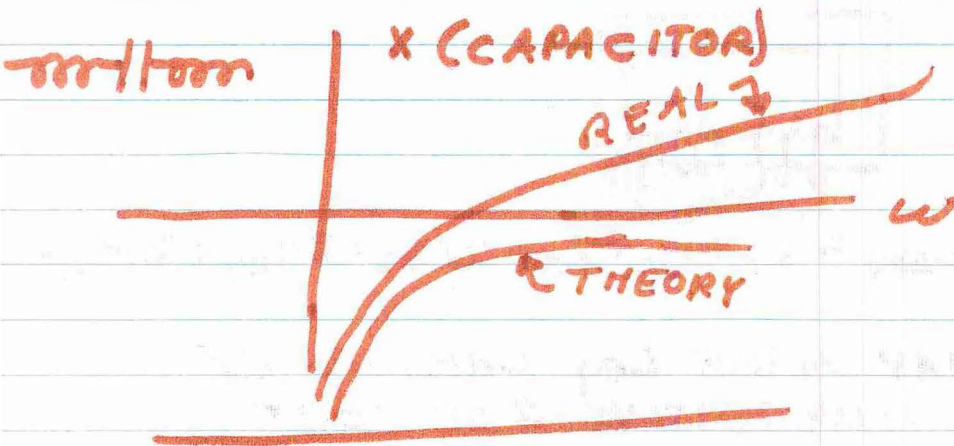 X (CAPACITOR)
REAL
ω
THEORY